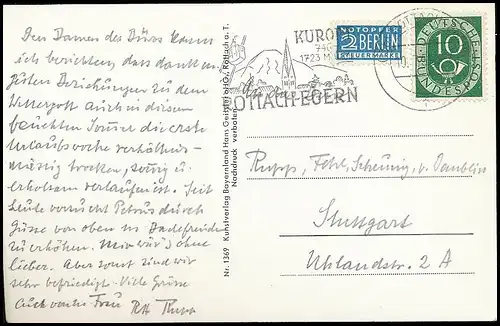 Den Damen des Büros kann
ich berichten, dass dank
guten Beziehungen zu dem
Wettergott auch in diesem
feuchten Sommer die erste
Urlaubswoche verhältnis-
mässig trocken, sonnig u.
erholsam verlaufen ist. Seit
heute versucht Petrus durch
Güsse von oben die Badefreuden
zu erhöhen. Mir wär's ohne
lieber. Aber sonst sind wir
sehr befriedigt. Viele Grüsse
auch von Frau
Rupp
Nr. 1369 Kunstverlag Bayernland Hans Geisler oHG, Rottach a. T.
Nachdruck verboten
KUROR
740
1723 M
ROTTACH-EGERN
NOTOPFER
2 BERLIN
STEUERMARKE
DEUTSCHE
BUNDESPOST
10
Rupp,
Stuttgart
Uhlandstr. 2 A